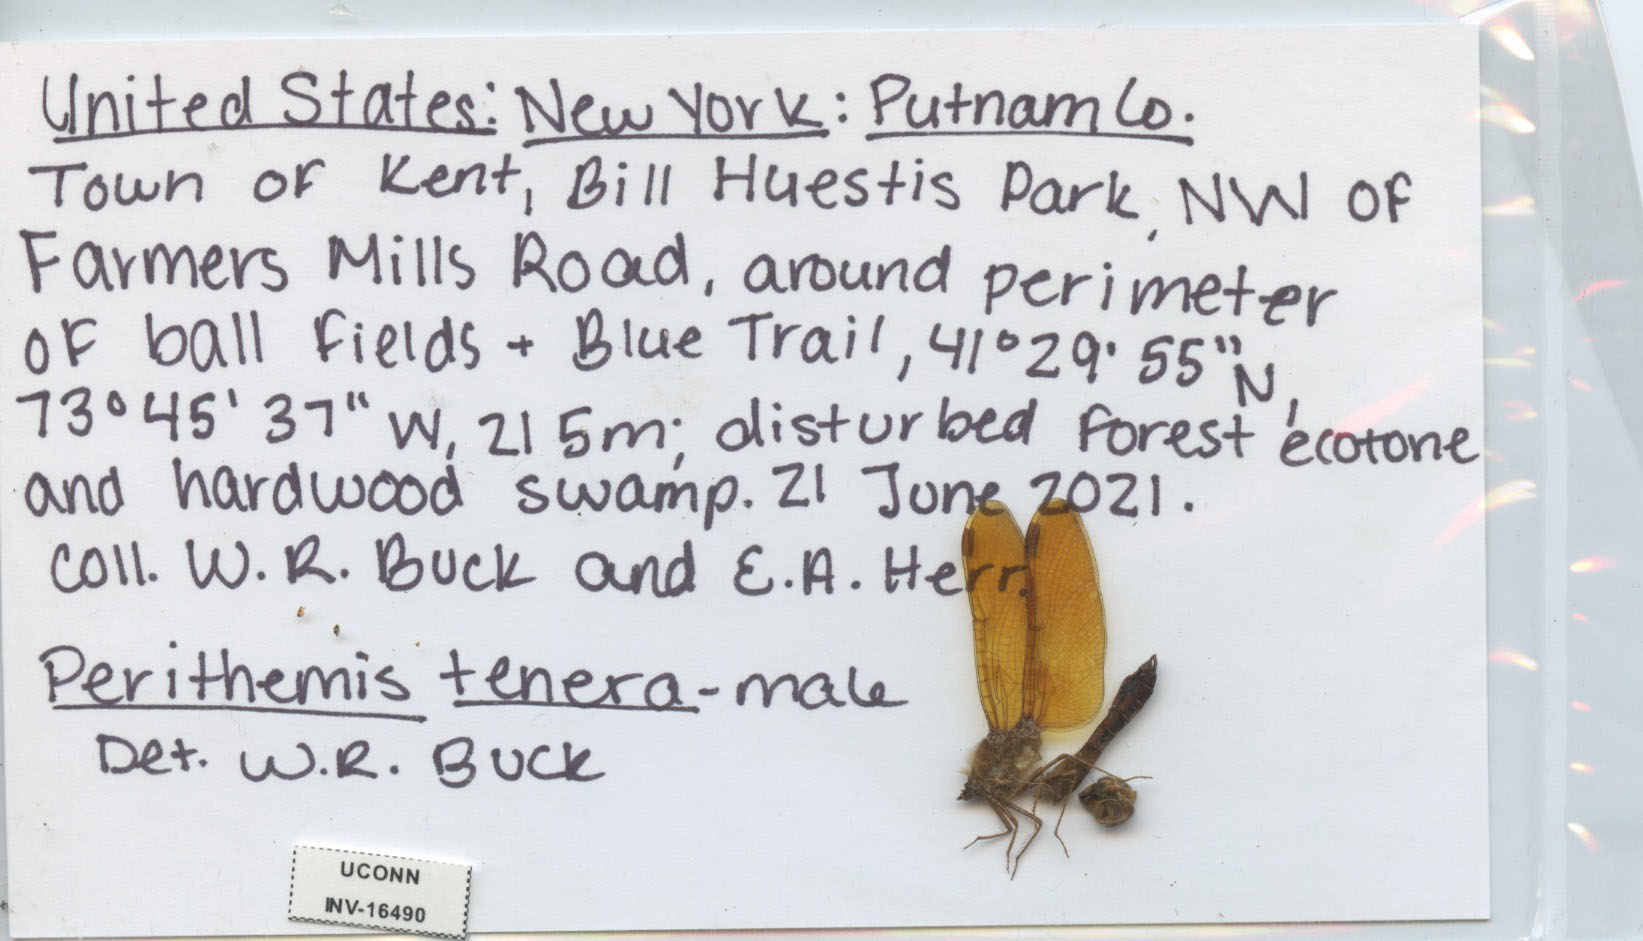 United States: New York: Putnam Co.
Town of Kent, Bill Huestis Park, NW of
Farmers Mills Road, around perimeter
of ball fields + Blue Trail, 41°29'55"N,
73°45'37"W, 215m; disturbed forest ecotone
and hardwood swamp. 21 June 2021.
coll. W.R. Buck and E.A. Herr.
Perithemis tenera - male
Det. W.R. Buck
UCONN
INV-16490